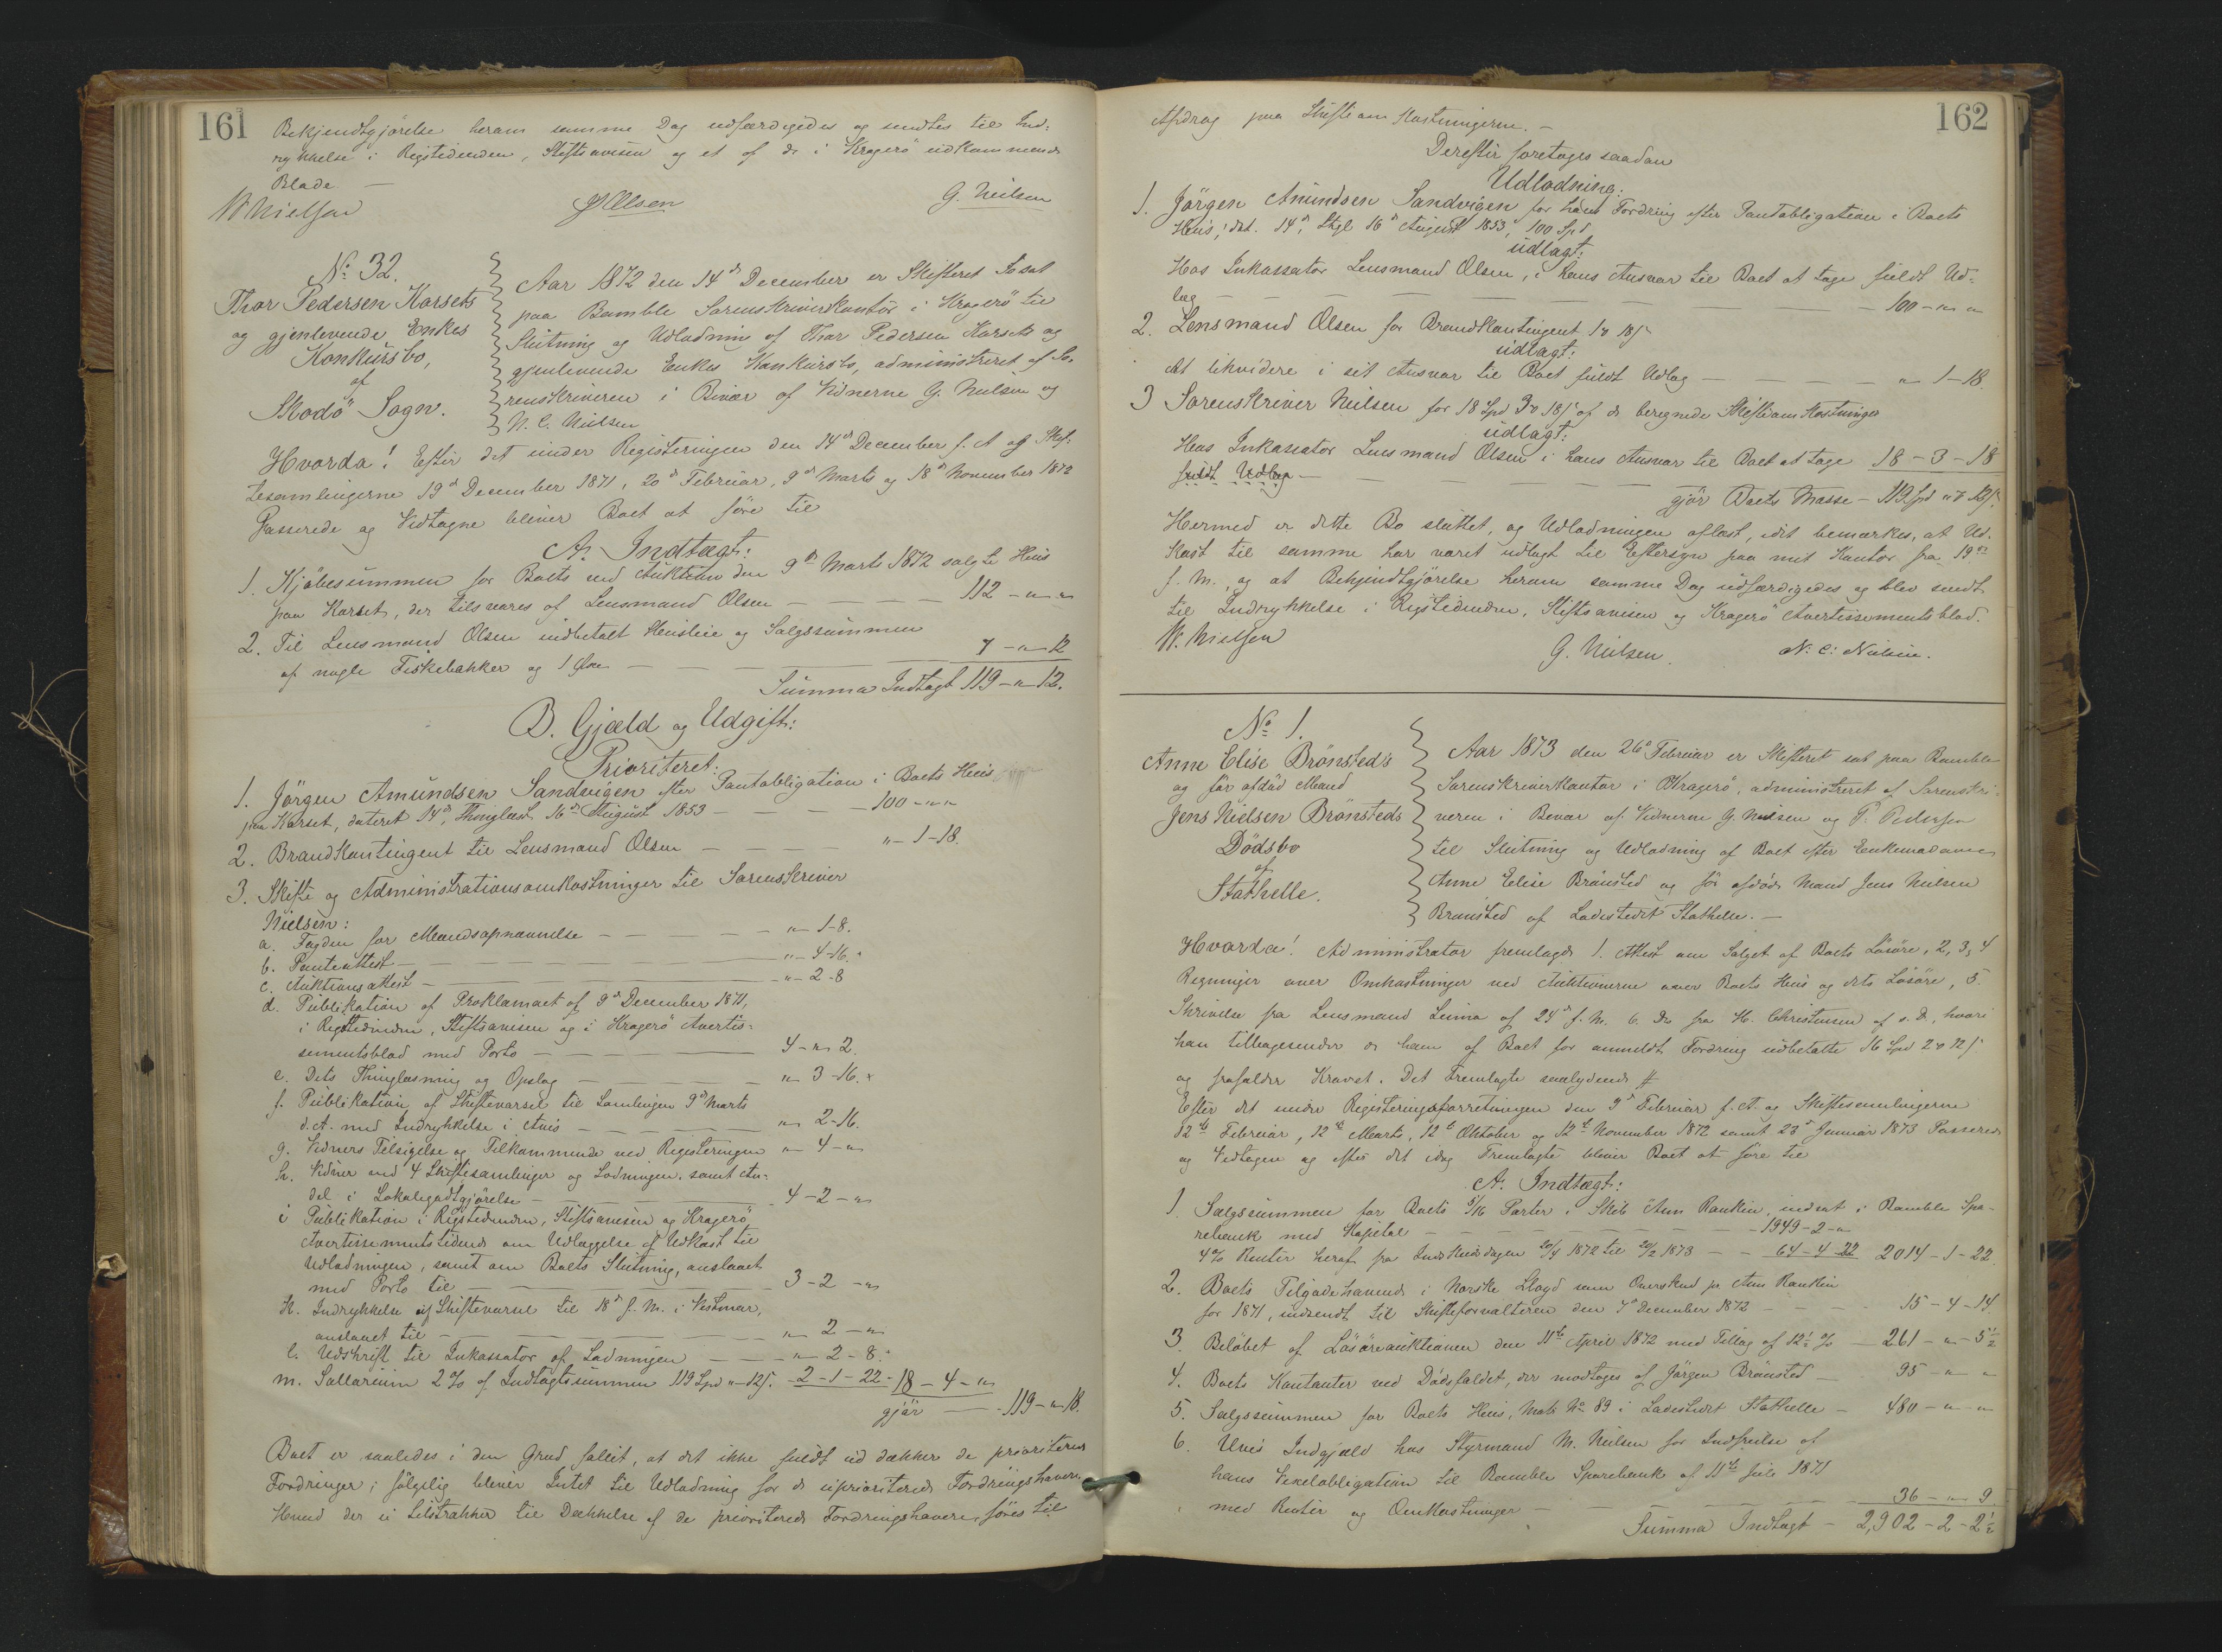 161
Bekjendtgjörelse herom samme Dag udfærdigedes og sendtes til Ind-
rykkelse i Rigstidenden, Stiftsavisen og et af de i Kragerö udkommende
Blade —
W Nielsen Olsen G. Neilsen
No 32.
Thor Pedersen Korsets
og gjenlevende Enkes
Konkursbo,
af
Skodö Sogn.
Aar 1872 den 14de December er Skifteret sat
paa Bamble Sorenskriverkontor i Kragerö til
Slutning og Udlodning af Thor Pedersen Korsets og
gjenlevende Enkes Konkursbo, administreret af So-
renskriveren i Bivær af Vidnerne G. Neilsen og
N. C. Nielsen
Hvorda! Efter det under Registeringen den 14de December f. A og Skif-
tesamlingerne 19de December 1871, 20de Februar, 9de Marts og 18de November 1872
Passerede og Vidtagne bliver Boet at före til
A. Indtægt:
1. Kjöbesummen for Boets ved Auktion den 9de Marts 1872 solgte Huus
paa Korset, der tilsvares af Lensmand Olsen — 112 - " - "
2. Til Lensmand Olsen indbetalt Husleie og Salgssummen
af nogle Fiskebakker og 1 — 7 - " - 12
Summa Indtægt 119 - " - 12.
B. Gjæld og Udgift:
Prioriteret:
1. Jörgen Amundsen Sandvigen efter Pantobligation i Boets Huus
paa Korset, dateret 14de, Thinglæst 16de August 1853 — 100 - " - "
2. Brandkontingent til Lensmand Olsen — " - 1 - 18.
3. Skifte og Administrationsomkostninger til Sorenskriver
Nielsen:
a. Fogden for Mandsopnævnelse — " - 1 - 8.
b. Panteattest — " - 4 - 16.
c. Auktionsattest — " - 2 - 8
d. Publikation af Proklamaet af 9de December 1871,
i Rigstidenden, Stiftsavisen og i Kragerö Avertis-
sementsblad med Porto — 4 - " - 2.
e. Dets Thinglæsning og Opslag — " - 3 - 16.
f. Publikation af Skiftevarsel til Samlingen 9de Marts
d. A. med Indrykkelse i Avis — " - 2 - 16.
g. Vidners Tilsigelse og Tilkommende ved Registeringen " - 4 - "
h. Vidner ved 4 Skiftesamlinger og Lodningen, samt An-
del i Lokalegodtgjörelse — 4 - 2 - "
i Publikation i Rigstidenden, Stiftsavisen og Kragerö
Avertissementstidende om Udlæggelse af Udkast til
Udlodningen, samt om Boets Slutning, anslaaet
med Porto til — 3 - 2 - "
k. Indrykkelse af Skiftevarsel til 18de f. M. i Vestmar,
anslaaet til — " - 2 - "
l. Udskrift til Inkassator af Lodningen — " - 2 - 8.
m. Sallarium 2% af Indtægtssummen 119 Spd " - 12 s. 2 - 1 - 22 - 18 - 4 - "
gjör — 119 - " - 18.
Boet er saaledes i den Grad fallit, at det ikke fuldt ud dækker de prioriterede
Fordringer; fölgelig bliver Intet til Udlodning for de uprioriterede Fordringshavere.
Hvad der ei tilstrækker til Dækkelse af de prioriterede Fordringshavere, föres til
162
Afdrag paa Skifteomkostningerne. —
Derefter foretoges saadan
Udlodning:
1. Jörgen Amundsen Sandvigen for hans Fordring efter Pantobligation i Boets
Huus, dat. 14de, thgl. 16de August 1853, 100 Spd
udlagt:
Hos Inkassator Lensmand Olsen, i hans Ansvar til Boet at tage fuldt Ud-
læg — 100 - " - "
2. Lensmand Olsen for Brandkontingent 1 [ort] 18 s
udlagt:
At likvidere i sit Ansvar til Boet fuldt Udlæg — " - 1 - 18.
3 Sorenskriver Neilsen for 18 Spd 3 [ort] 18 s af de beregnede Skifteomkostninger
udlagt:
Hos Inkassator Lensmand Olsen i hans Ansvar til Boet at tage 18 - 3 - 18
fuldt Udlæg —
gjör Boets Masse — 119 Spd " 12 s.
Hermed er dette Bo sluttet, og Udlodningen aflæst, idet bemærkes, at Ud-
kast til samme har været udlagt til Eftersyn paa mit Kontor fra 19de
f. M., og at Bekjendtgjörelse herom samme Dag udfærdigedes og blev sendt
til Indrykkelse i Rigstidenden, Stiftsavisen og Kragerö Avertissementsblad.
W. Nielsen G. Neilsen. N. C. Nielsen.
No 1.
Anne Elise Brönsted's
og för afdöd Mand
Jens Nielsen Brönsteds
Dödsbo
af
Stathelle.
Aar 1873 den 26de Februar er Skifteret sat paa Bamble
Sorenskriverkontor i Kragerö, administreret af Sorenskri-
veren i Bivær af Vidnerne G. Nielsen og P. Pedersen
til Slutning og Udlodning af Boet efter Enkemadame
Anne Elise Brönsted og för afdöde Mand Jens Nielsen
Brönsted af Ladestedet Stathelle. —
Hvorda! Administrator fremlagde 1. Attest om Salget af Boets Lösöre, 2, 3, 4
Regninger over Omkostninger ved Auktionerne over Boets Huus og dets Lösöre, 5.
Skrivelse fra Lensmand Leima af 24de f. M. 6. Do fra H. Christensen af s. D., hvori
han tilbagesender de ham af Boet for anmeldt Fordring udbetalte 16 Spd 2 [ort] 12 s
og frafalder Kravet. Det Fremlagte saalydende #
Efter det under Registeringsforretningen den 3de Februar f. A. og Skiftesamlingerne
12te Februar, 12te Marts, 12te Oktober og 12te November 1872 samt 23de Januar 1873 Passerede
og Vidtagne og efter det idag Fremlagte bliver Boet at före til
A. Indtægt:
1. Salgssummen for Boets 5/16 Parter i Skib Ann Rankin, indsat i Bamble Spa-
rebank med Kapital — 1949 - 2 - "
4% Renter heraf fra Indskudsdagen 20/4 1872 til 20/2 1873 — 64 - 4 - 22 2014 - 1 - 22.
2. Boets Tilgodehavende i Norske Lloyd som Overskud pr Ann Rankin
for 1871, indsendt til Skifteforvalteren den 7de December 1872 — 15 - 4 - 14
3. Belöbet af Lösöreauktionen den 11te April 1872 med Tillæg af 12½ % — 261 - " - 5½
4. Boets Kontanter ved Dödsfaldet, der modtoges af Jörgen Brönsted — 95 - " - "
5. Salgssummen for Boets Huus, Matr No 89 i Ladestedet Stathelle — 480 - " - "
6. Uvis Indgjæld hos Styrmand M. Neilsen for Indfrielse af
hans Vexelobligation til Bamble Sparebank af 11te Juli 1871
med Renter og Omkostninger — 36 - " - 9
Summa Indtægt — 2,902 - 2 - 2½